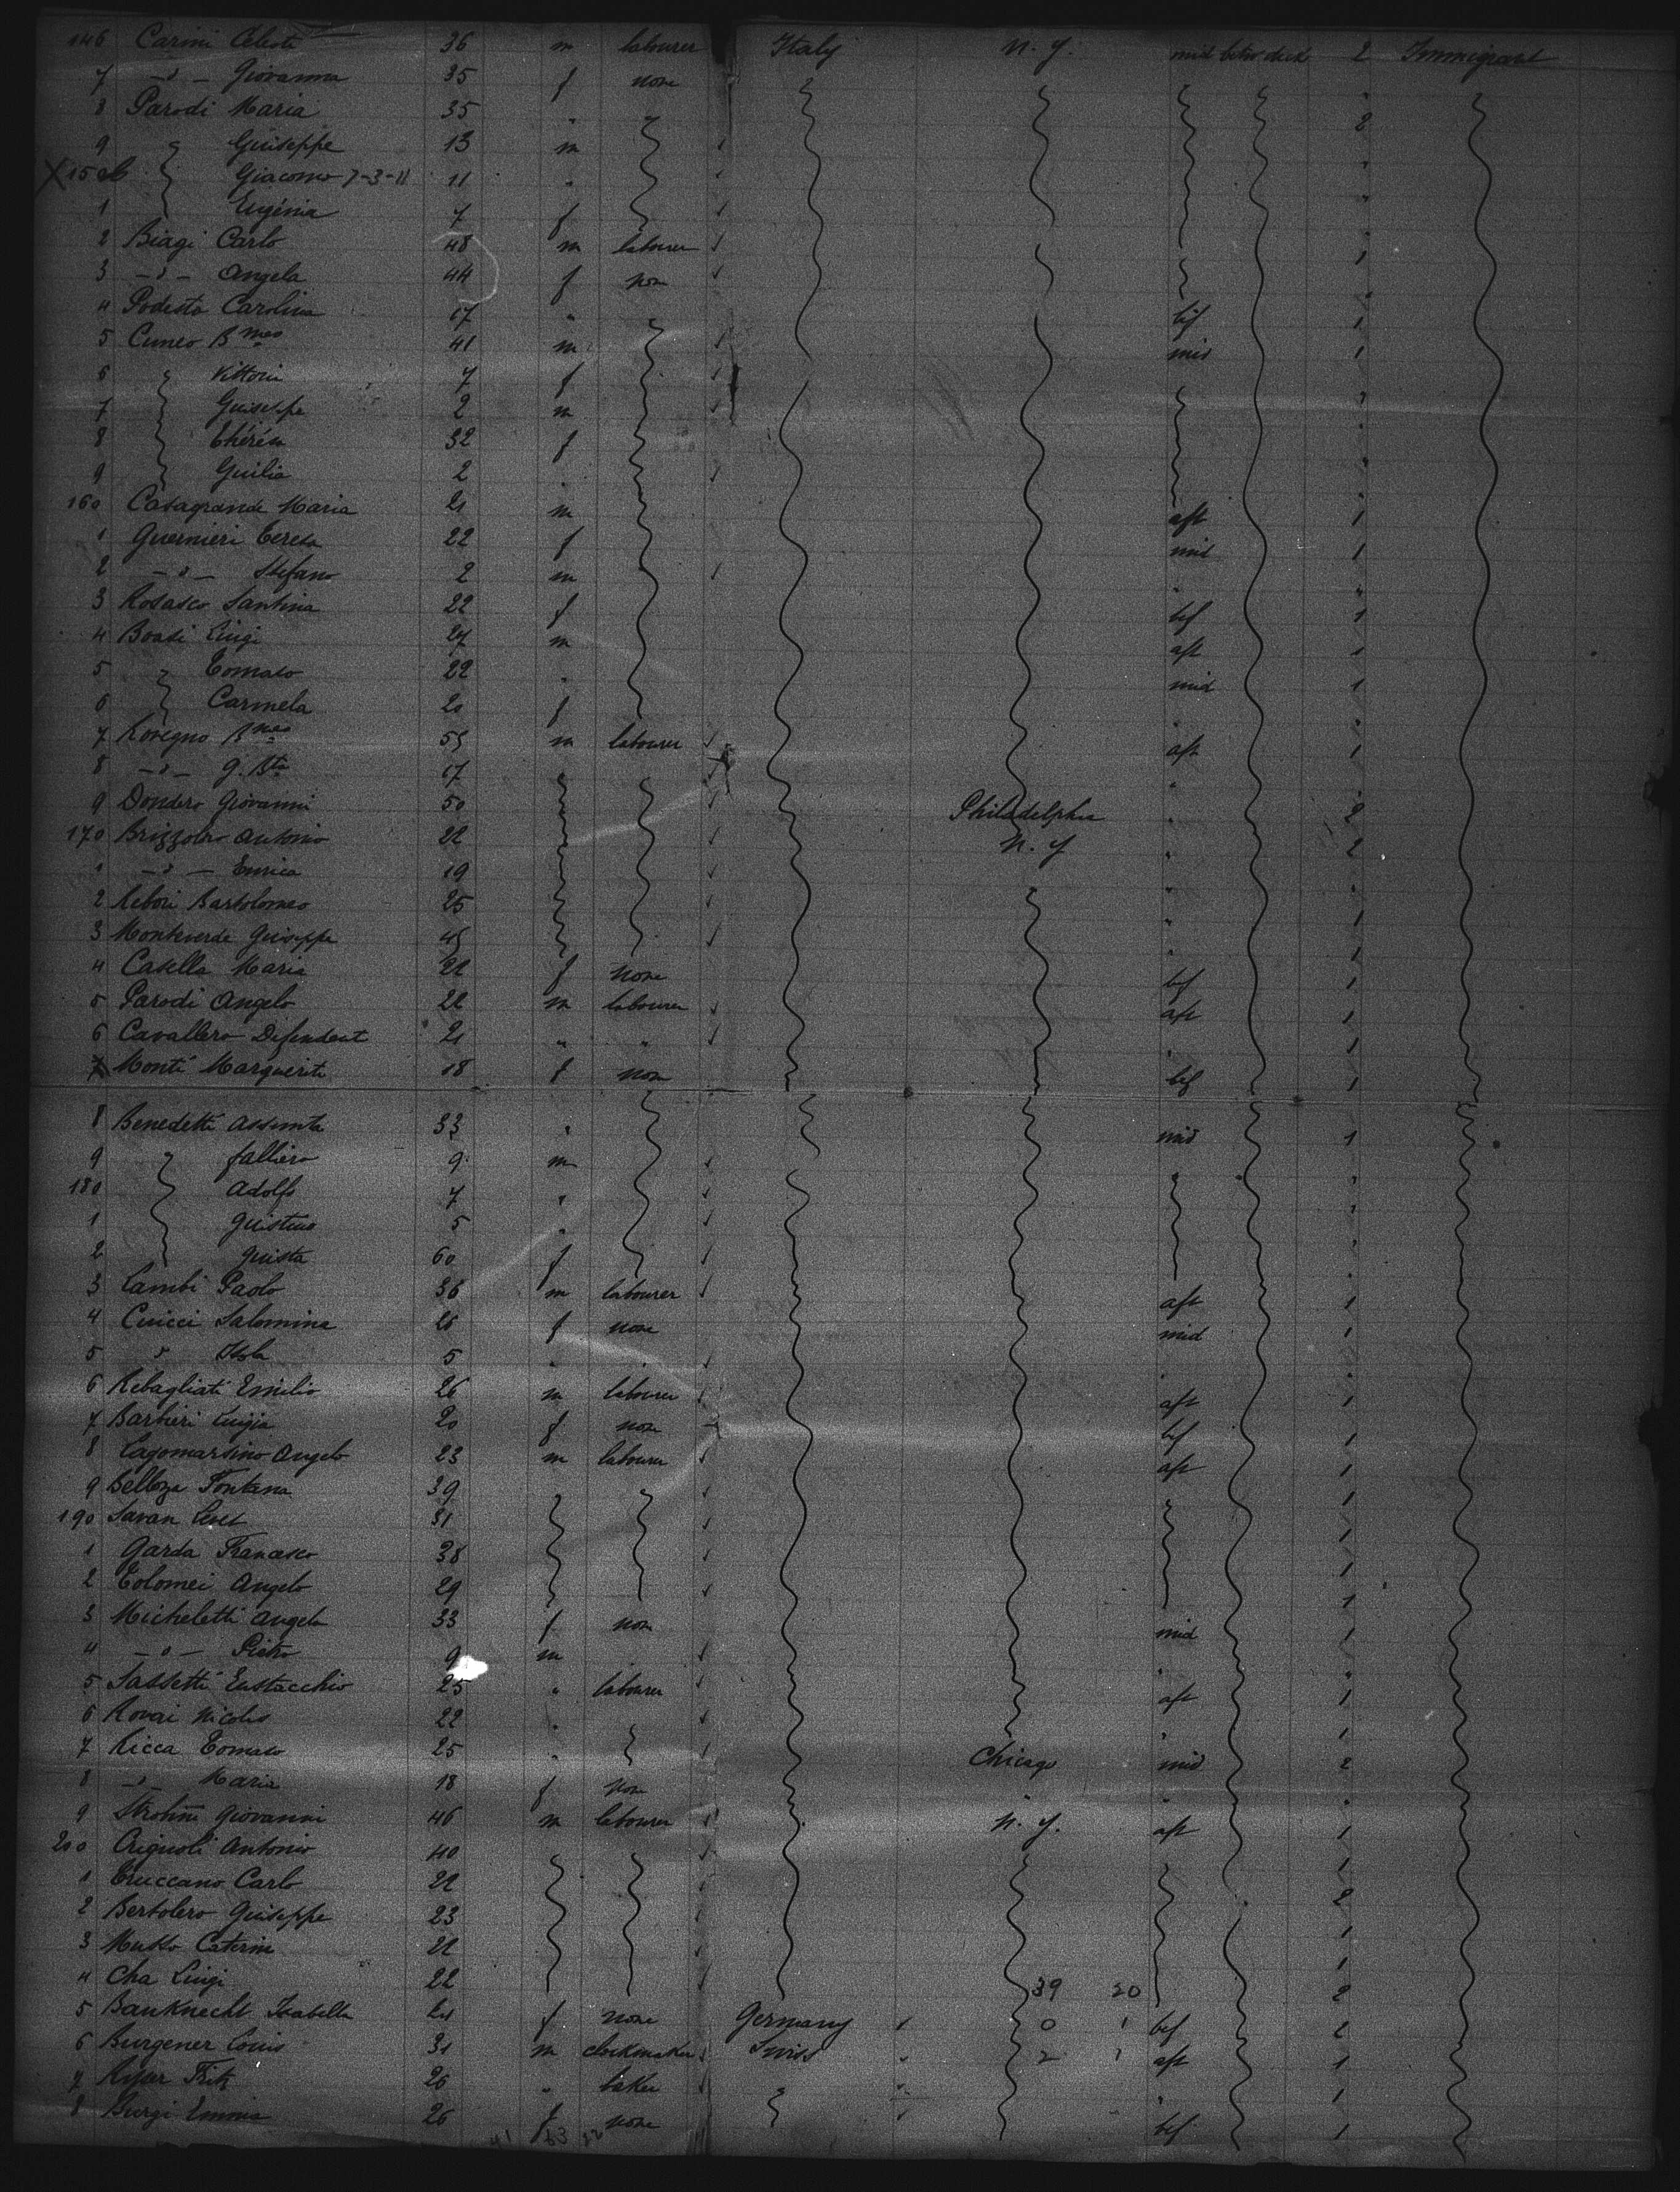 146 Carini Celeste 36 m labourer Italy N. Y. mid betw deck 2 Immigrant
7 -"- Giovanna 35 f none "
8 Parodi Maria 35 " 2
9 Giuseppe 13 m "
X 150 Giacomo 7-3-11 11 " "
1 Eugénia 7 f "
2 Biagi Carlo 48 m labourer 1
3 -"- Angela 44 f none "
4 Podesta Carolina 17 " bef 1
5 Cuneo Bmeo 41 m mid 1
6 Vittoria 7 f "
7 Guiseppe 2 m "
8 Thérésa 32 f "
9 Guilia 2 " "
160 Casagrande Maria 21 m aft 1
1 Guernieri Teresa 22 f mid 1
2 -"- Stefano 2 m " "
3 Rosasco Santina 22 f bef 1
4 Boasi Luigi 27 m aft 1
5 Tomaso 22 " mid 1
6 Carmela 20 f " "
7 Rovegno Bmeo 55 m labourer aft 1
8 -"- G. Bta 17 " "
9 Dondero Giovanni 50 Philadelphia " 2
170 Brizzolara Antonio 22 N. Y " 2
1 -"- Enrica 19 " "
2 Rebori Bartolomeo 25 " 1
3 Monteverde Guiseppe 45 " 1
4 Casella Maria 22 f none bef 1
5 Parodi Angelo 22 m labourer aft 1
6 Cavallero Defendent 21 " " " 1
7 Monti Marguerite 18 f none bef 1
8 Benedetti Assunta 33 " mid 1
9 falliero 9 m "
180 Adolfo 7 " "
1 Guistino 5 " "
2 Guista 60 f "
3 Lambi Paolo 36 m labourer aft 1
4 Cuicci Salomina 26 f none mid 1
5 " 5 " " " "
6 Rebagliati Emilio 26 m labourer aft 1
7 Barbieri Luigia 20 f none bef 1
8 Lagomarsino Angelo 23 m labourer aft 1
9 Belloza Fontana 39 1
190 Savan 31 1
1 Garda Francesco 38 1
2 Tolomei Angelo 29 1
3 Micheletti Angela 33 f none mid 1
4 -"- Pietro 9 m " "
5 Sassetti Eustacchio 25 " labourer aft 1
6 Rovai Nicolo 22 " " 1
7 Ricca Tomaso 25 " Chicago mid 2
8 -"- Maria 18 f none " " "
9 Giovanni 46 m labourer N. Y. aft 1
200 Antonio 40 1
1 Truccano Carlo 22 2
2 Bertolero Guiseppe 23 1
3 Musso Caterina 22 1
4 Cha Luigi 22 39 20 2
5 BauKnecht Isabella 24 f none Germany " 0 1 bef 2
6 Burgener Louis 31 m clockmaker Swiss " 2 1 aft 1
7 Fritz 26 " baker " " 1
8 Burgi Emma 26 f none " bef 1
41 63 22